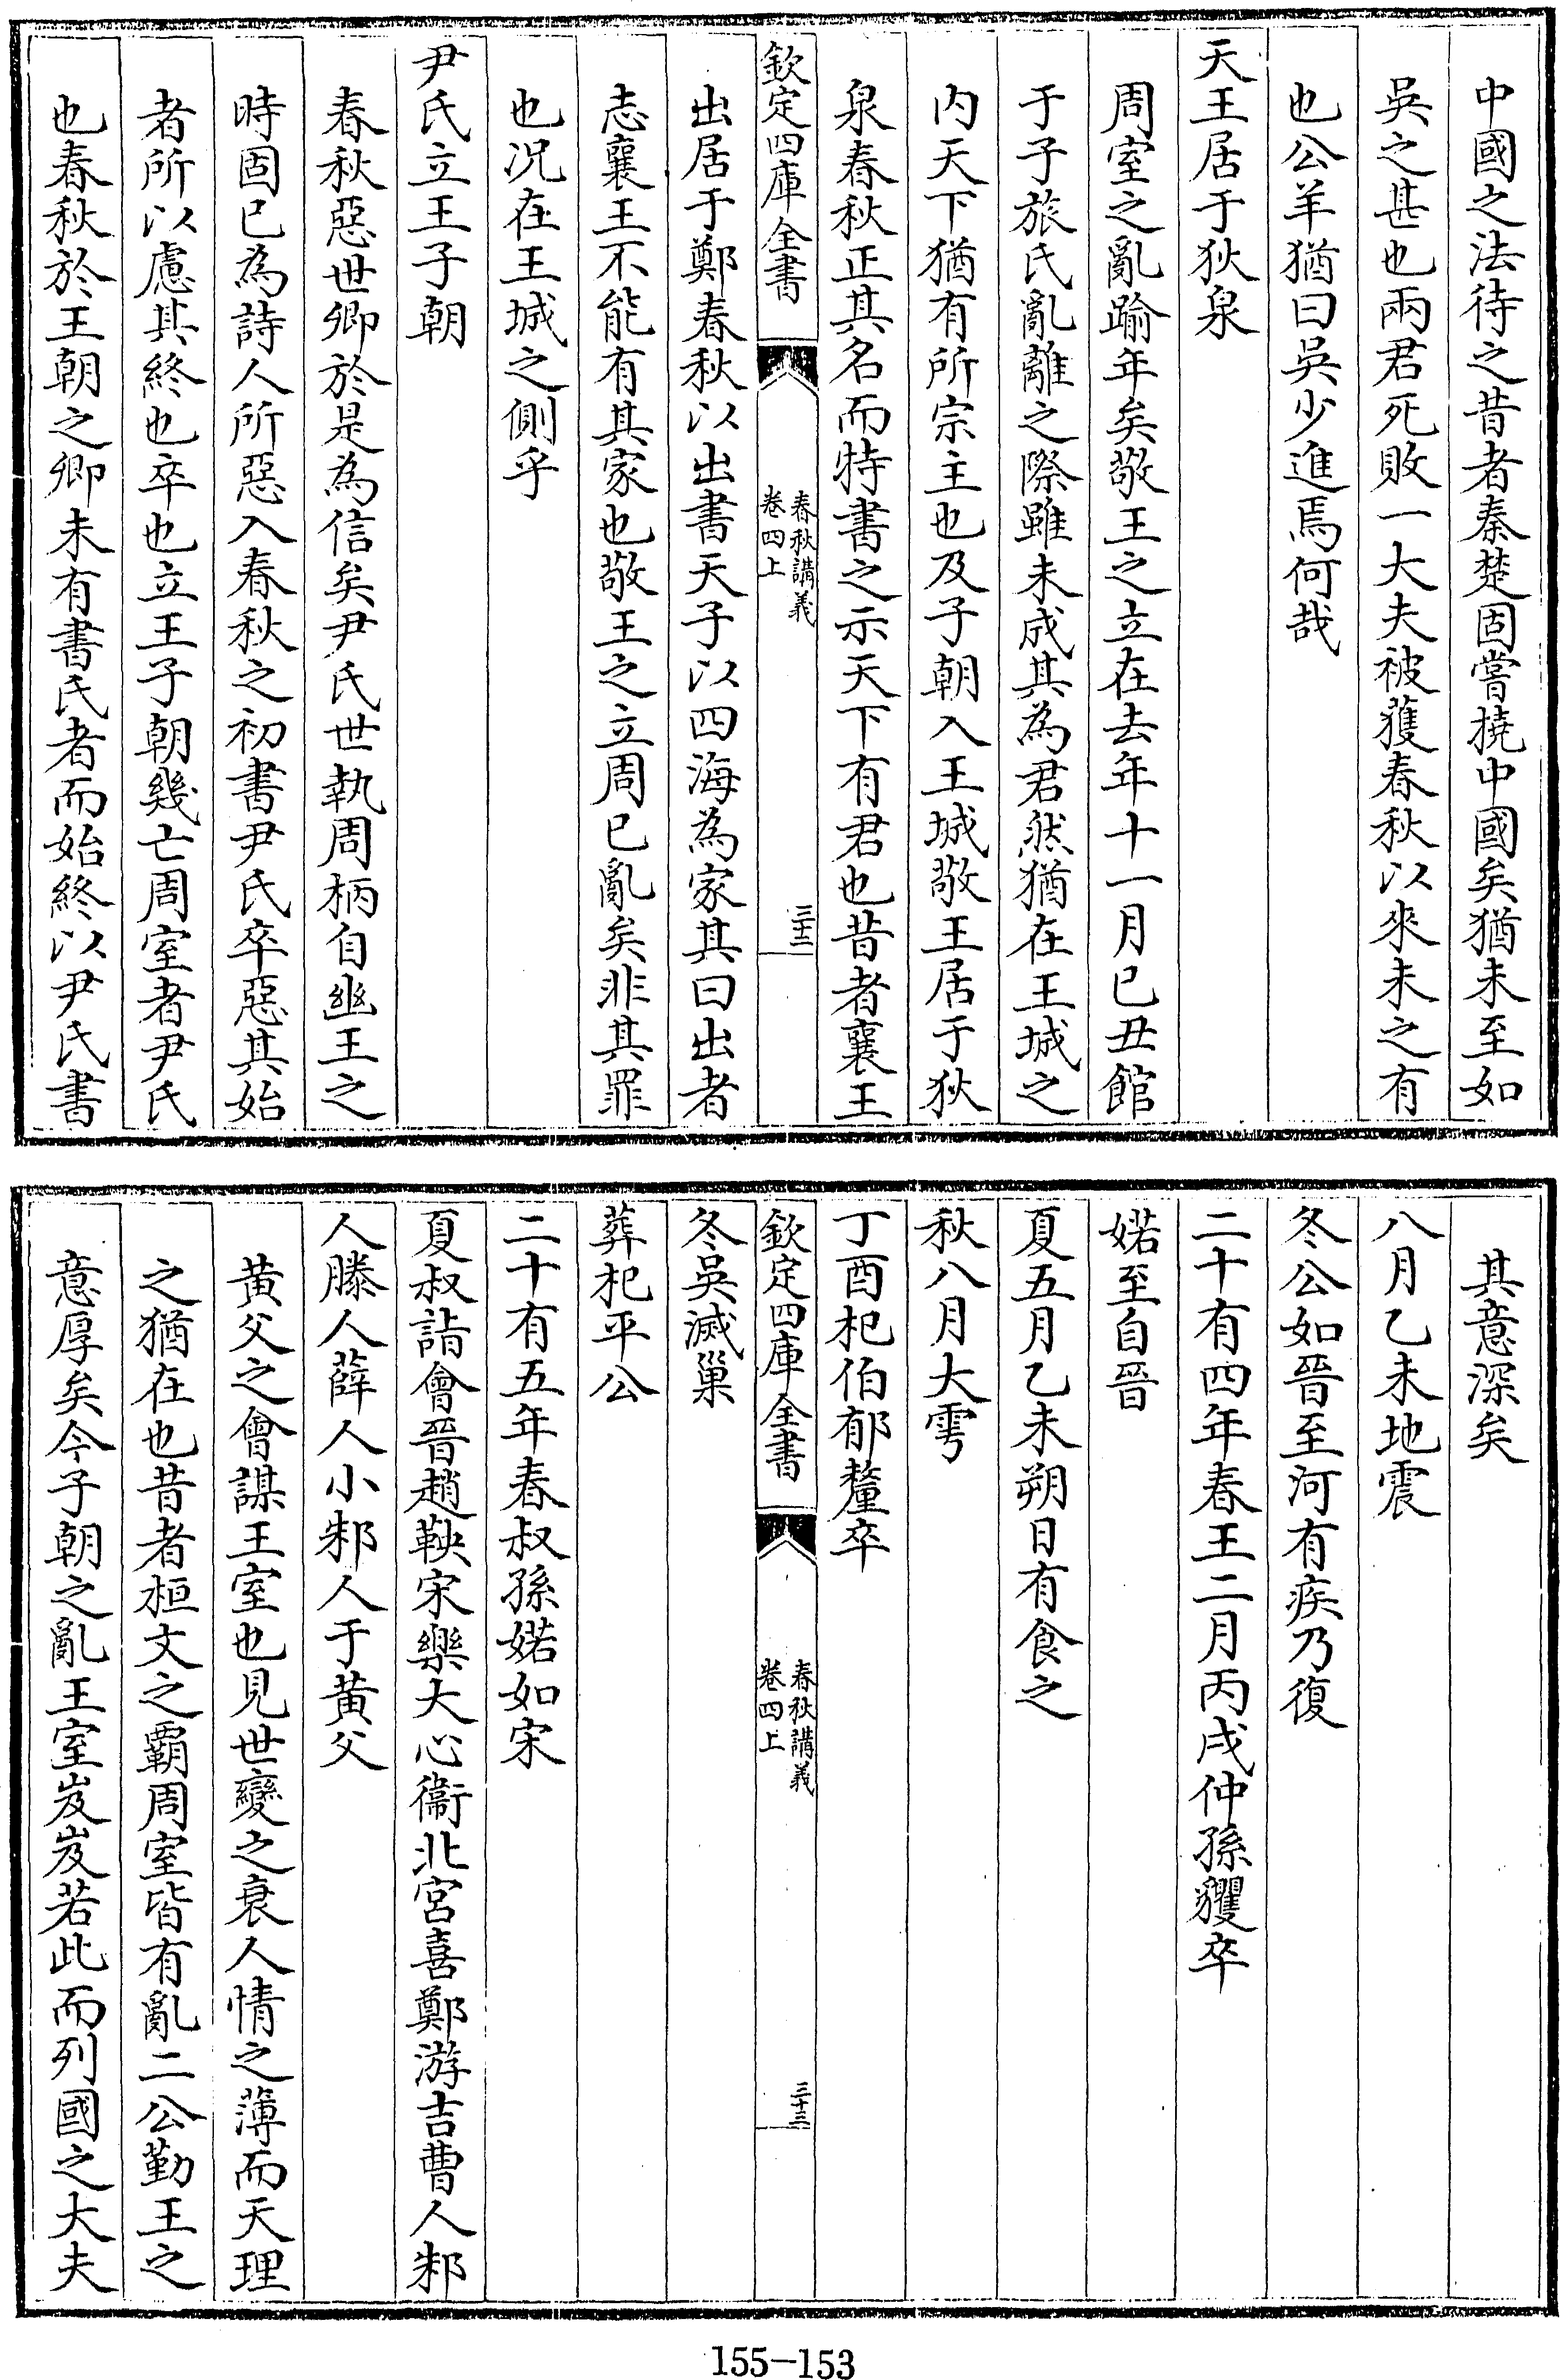 中國之法待之昔者秦楚固嘗撓中國矣猶未至如
吳之甚也兩君死敗一大夫被獲春秋以來未之有
也公羊猶曰吳少進焉何哉
天王居于狄泉
周室之亂踰年矣敬王之立在去年十一月已丑館
于子旅氏亂離之際雖未成其為君然猶在王城之
内天下猶有所宗主也及子朝入王城敬王居于狄
泉春秋正其名而特書之示天下有君也昔者襄王
欽定四庫全書
春秋講義
卷四上
三十二
出居于鄭春秋以出書天子以四海為家其曰出者
志襄王不能有其家也敬王之立周已亂矣非其罪
也況在王城之側乎
尹氏立王子朝
春秋惡世卿於是為信矣尹氏世執周柄自幽王之
時固已為詩人所惡入春秋之初書尹氏卒惡其始
者所以慮其終也卒也立王子朝幾亡周室者尹氏
也春秋於王朝之卿未有書氏者而始終以尹氏書
其意深矣
八月乙未地震
冬公如晉至河有疾乃復
二十有四年春王二月丙戌仲孫貜卒
婼至自晉
夏五月乙未朔日有食之
秋八月大雩
丁酉杞伯郁釐卒
欽定四庫全書
春秋講義
卷四上
三十三
冬吳滅巢
葬杞平公
二十有五年春叔孫婼如宋
夏叔詣會晉趙鞅宋樂大心衞北宮喜鄭游吉曹人邾
人滕人薛人小邾人于黄父
黄父之會謀王室也見世變之衰人情之薄而天理
之猶在也昔者桓文之霸周室皆有亂二公勤王之
意厚矣今子朝之亂王室岌岌若此而列國之大夫
155-153